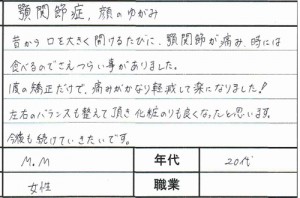 顎関節症,顔のゆがみ
昔から口を大きく開けるたびに、顎関節が痛み、時には
食べるのでさえつらい事がありました。
1度の矯正だけで、痛みがかなり軽減して楽になりました!
左右のバランスも整えて頂き化粧のりも良くなったと思います。
今後も続けていきたいです。
M.M 年代 20代
女性 職業